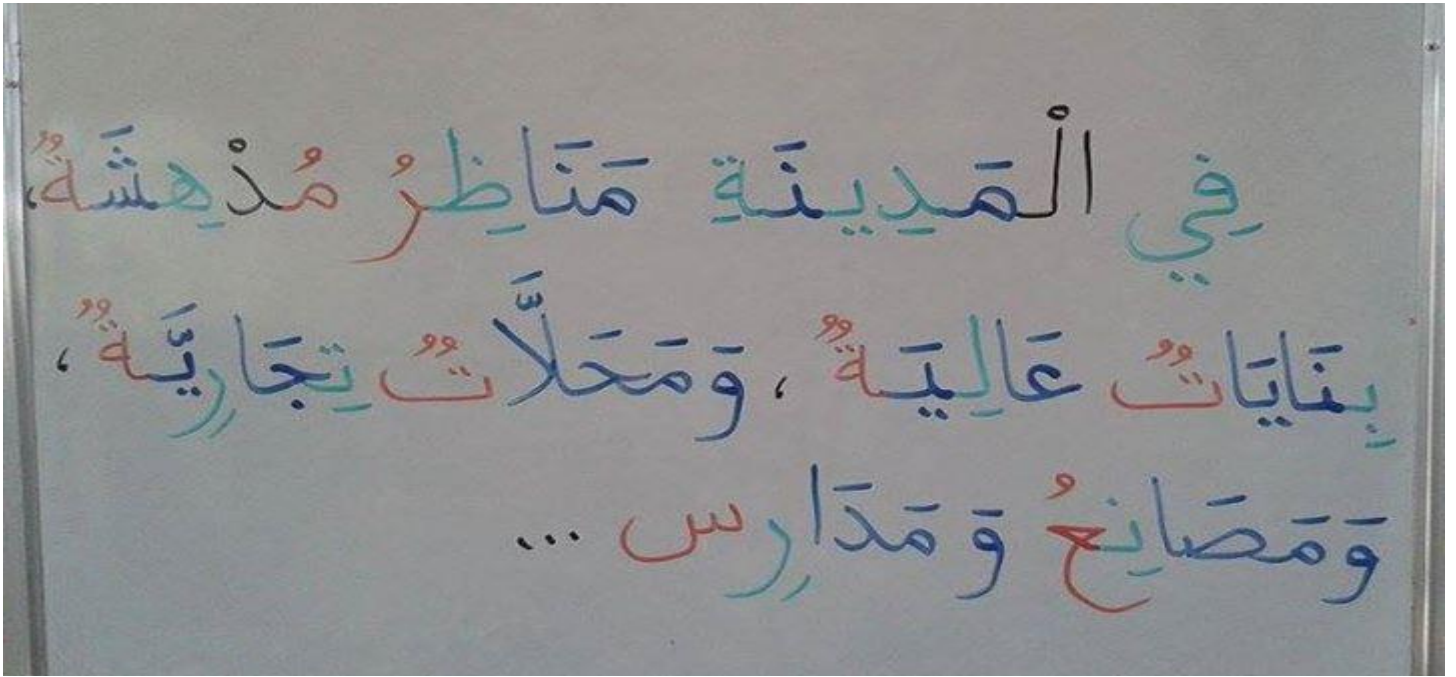 فِي الْمَدِينَةِ مَنَاظِرُ مُدْهِشَةٌ،
بِنَايَاتٌ عَالِيَةٌ، وَمَحَلاَّتٌ تِجَارِيَّةٌ،
وَمَصَانِعُ وَمَدَارِس ...